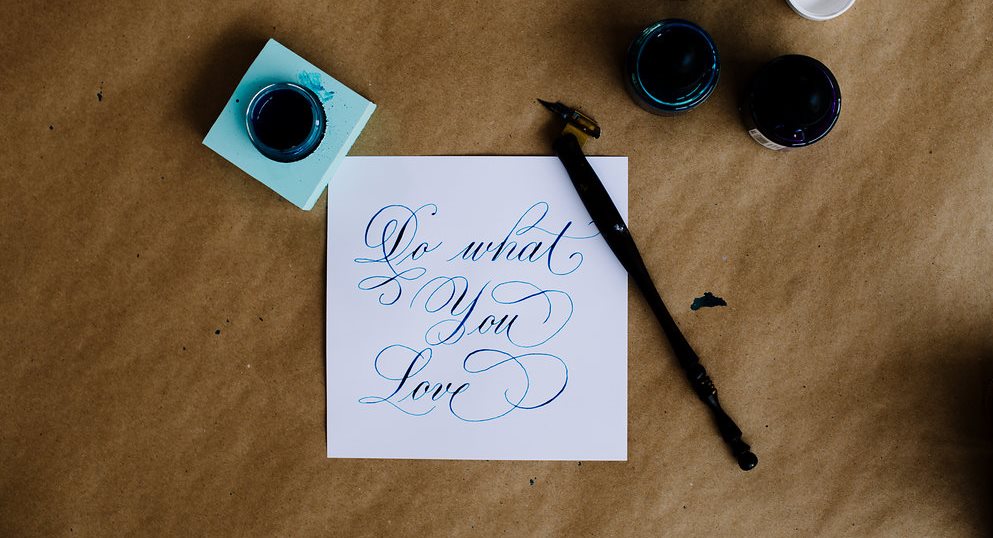 Do what
You
Love